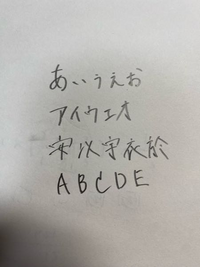 あいうえお
アイウエオ
安以宇衣於
ABCDE